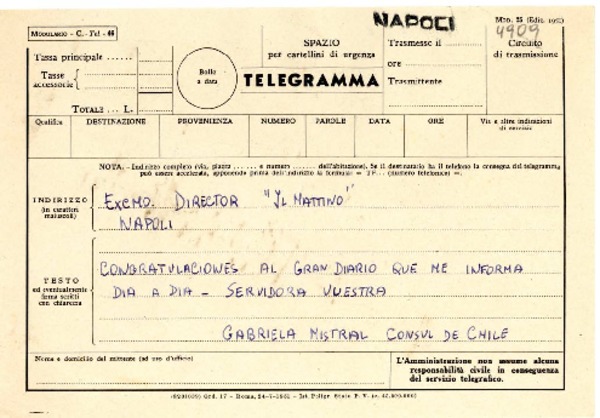 MODULARIO - C. - Tel - 44
NAPOLI
4909
Tassa principale
Tasse accessorie
TOTALE ... L.
Bollo a data
SPAZIO
per cartellini di urgenza
TELEGRAMMA
Trasmesso il
ore
Trasmittente
Circuito
di trasmissione
Qualifica DESTINAZIONE PROVENIENZA NUMERO PAROLE DATA ORE Via e altre indicazioni
NOTA. - Indirizzo completo (via, piazza ...... e numero ...... dell'abitazione). Se il destinatario ha il telefono la consegna del telegramma
può essere accelerata, apponendo prima dell'indirizzo la formula: = TF... (numero telefonico) =.
INDIRIZZO
(in caratteri
maiuscoli)
EXCMO. DIRECTOR "IL MATTINO"
NAPOLI
TESTO
ed eventualmente
firma scritti
con chiarezza
CONGRATULACIONES AL GRAN DIARIO QUE ME INFORMA
DIA A DIA - SERVIDORA VUESTRA
GABRIELA MISTRAL CONSUL DE CHILE
Nome e domicilio del mittente (ad uso d'ufficio)
L'Amministrazione non assume alcuna
responsabilità civile in conseguenza
del servizio telegrafico.
Ord. 17 - Roma, 24-7-1951 - Ist. Poligr. Stato P. V.